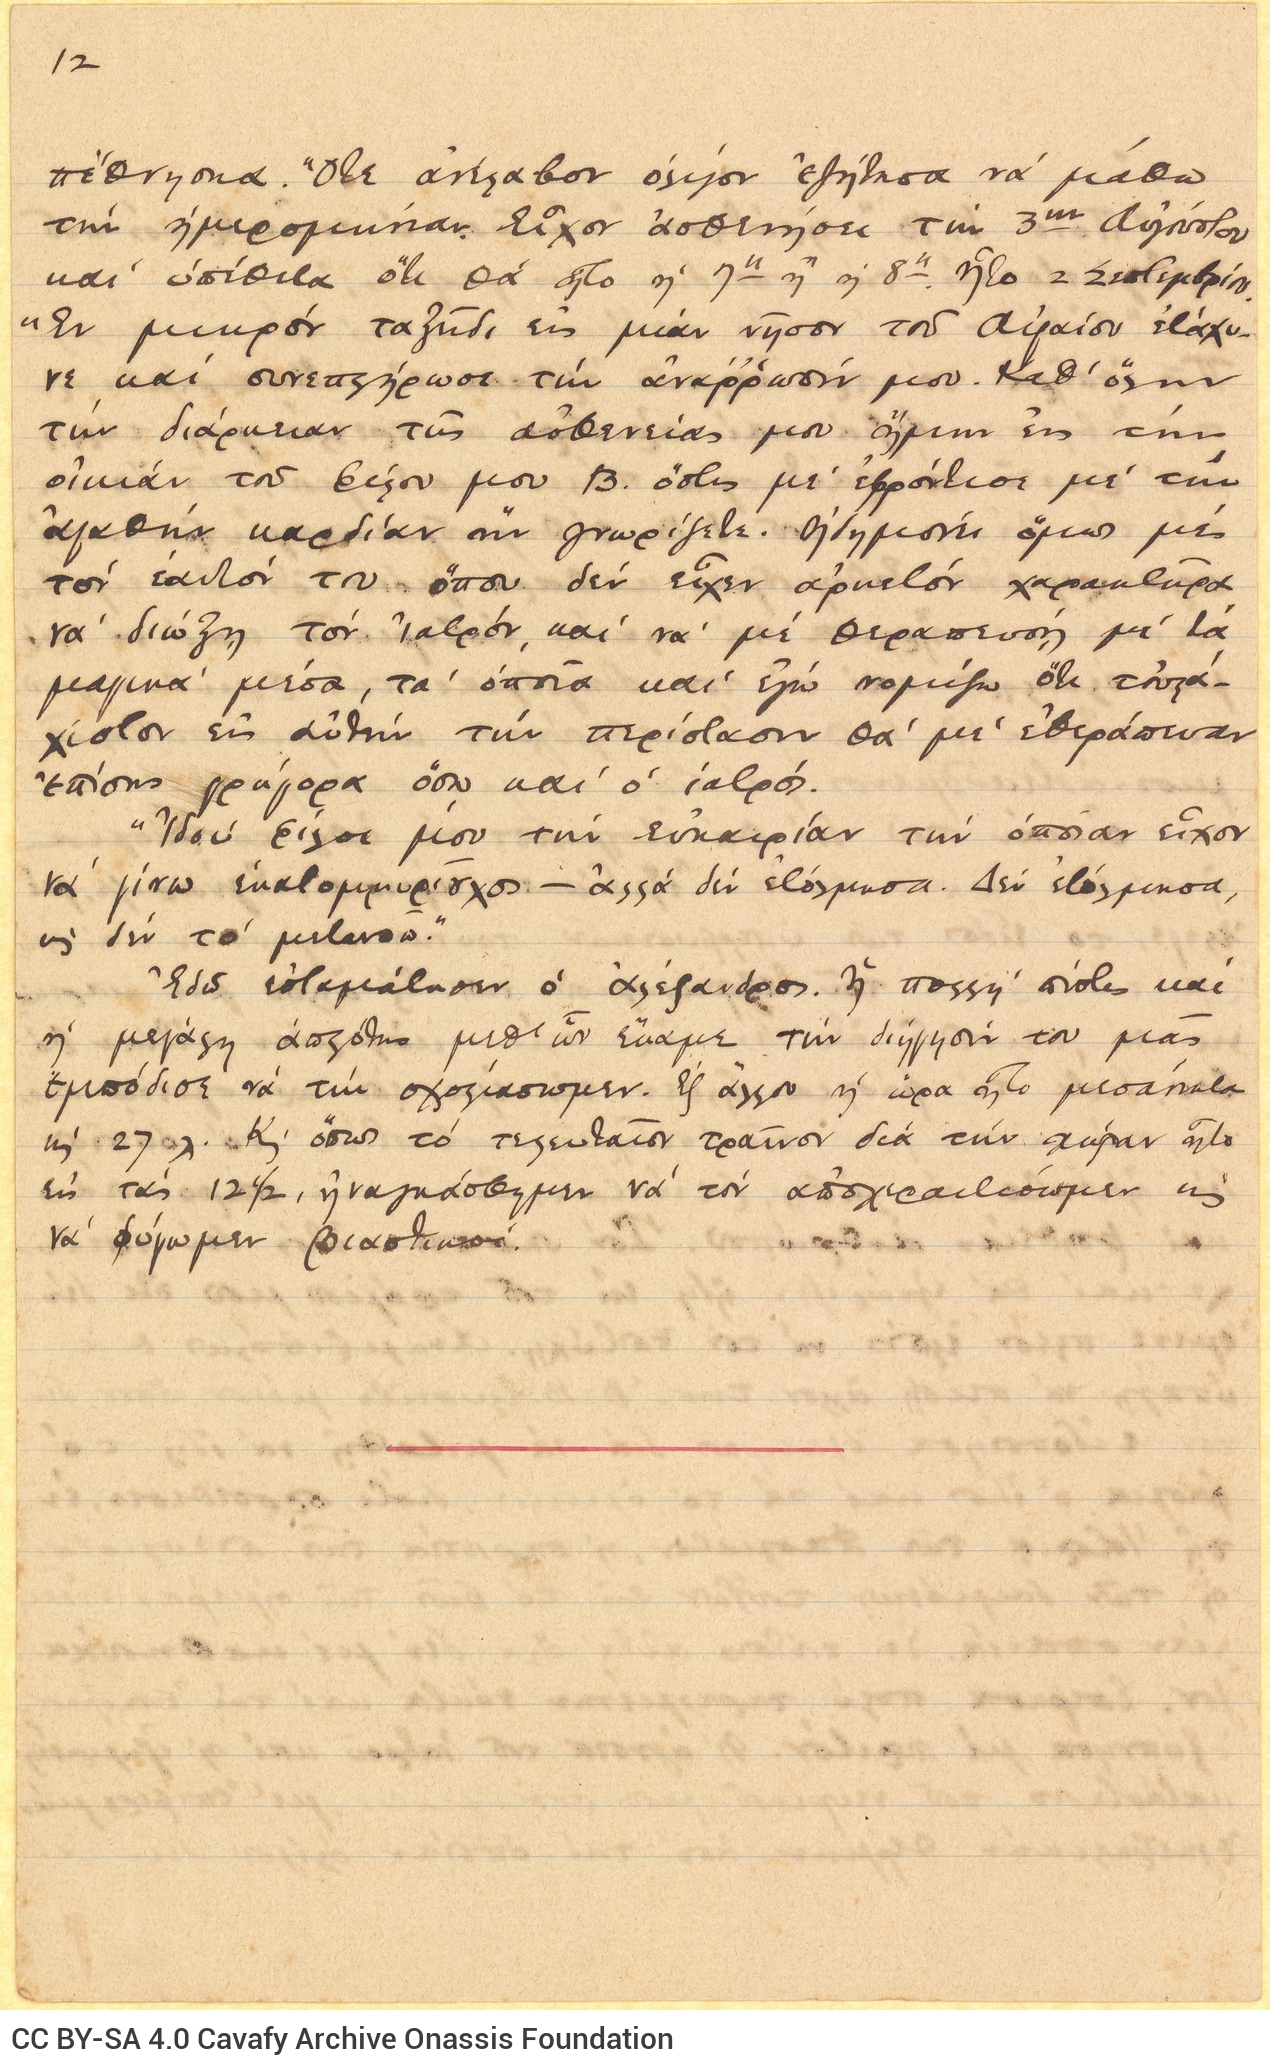 12
πέθνησκα. Ὅτε ἀνέλαβον ὀλίγον ἐζήτησα νά μάθω
τήν ἡμερομηνίαν. Εἶχον ἀσθενήσει τήν 3ην Αὐγούστου
καί ὑπέθετα ὅτι θά ἦτο ἡ 7η ἤ ἡ 8η. Ἦτο 2 Σεπτεμβρίου.
"Ἕν μικρόν ταξεῖδι εἰς μιάν νῆσον τοῦ Αἰγαίου ἐτάχυ-
νε καί συνεπλήρωσε τήν ἀνάῤῥωσίν μου. Καθ' ὅλην
τήν διάρκειαν τῆς ἀσθενείας μου ἤμην εἰς τήν
οἰκίαν τοῦ φίλου μου Β. ὅστις μέ ἐφρόντισε μέ τήν
ἀγαθήν καρδίαν ἥν γνωρίζετε. Ἠδημόνει ὅμως μέ
τόν ἑαυτόν του ὅπου δέν εἶχεν ἀρκετόν χαρακτῆρα
νά διώξῃ τόν ἰατρόν, καί νά μέ θεραπευσῃ μέ τά
μαγικά μέσα, τά ὁποῖα καί ἐγώ νομίζω ὅτι τοὐλά-
χιστον εἰς αὐτήν τήν περίστασιν θά μέ ἐθεράπευαν
ἐπίσης γρήγορα ὅσῳ καί ὁ ἰατρός.
"Ἰδού φίλοι μου τήν εὐκαιρίαν τήν ὁποίαν εἶχον
νά γίνω ἑκατομμυριοῦχος — ἀλλά δέν ἐτόλμησα. Δέν ἐτόλμησα,
κ̣ δέν τό μετανοῶ."
Ἐδῶ ἐσταμάτησεν ὁ Ἀλέξανδρος. Ἡ πολλή πίστις καί
ἡ μεγάλη ἁπλότης μεθ' ὧν ἔκαμε τήν διήγησίν του μᾶς
ἐμπόδισε νά τήν σχολιάσωμεν. Ἐξ ἄλλου ἡ ὥρα ἦτο μεσάνυκτα
κ̣ 27 λ. Κ̣ ὅπως τό τελευταῖον τραῖνον διά τήν ἦτο
εἰς τάς 12½, ἠναγκάσθημεν νά τόν ἀποχαιρετίσωμεν κ̣
νά φύγωμεν βιαστικοί.
CC BY-SA 4.0 Cavafy Archive Onassis Foundation